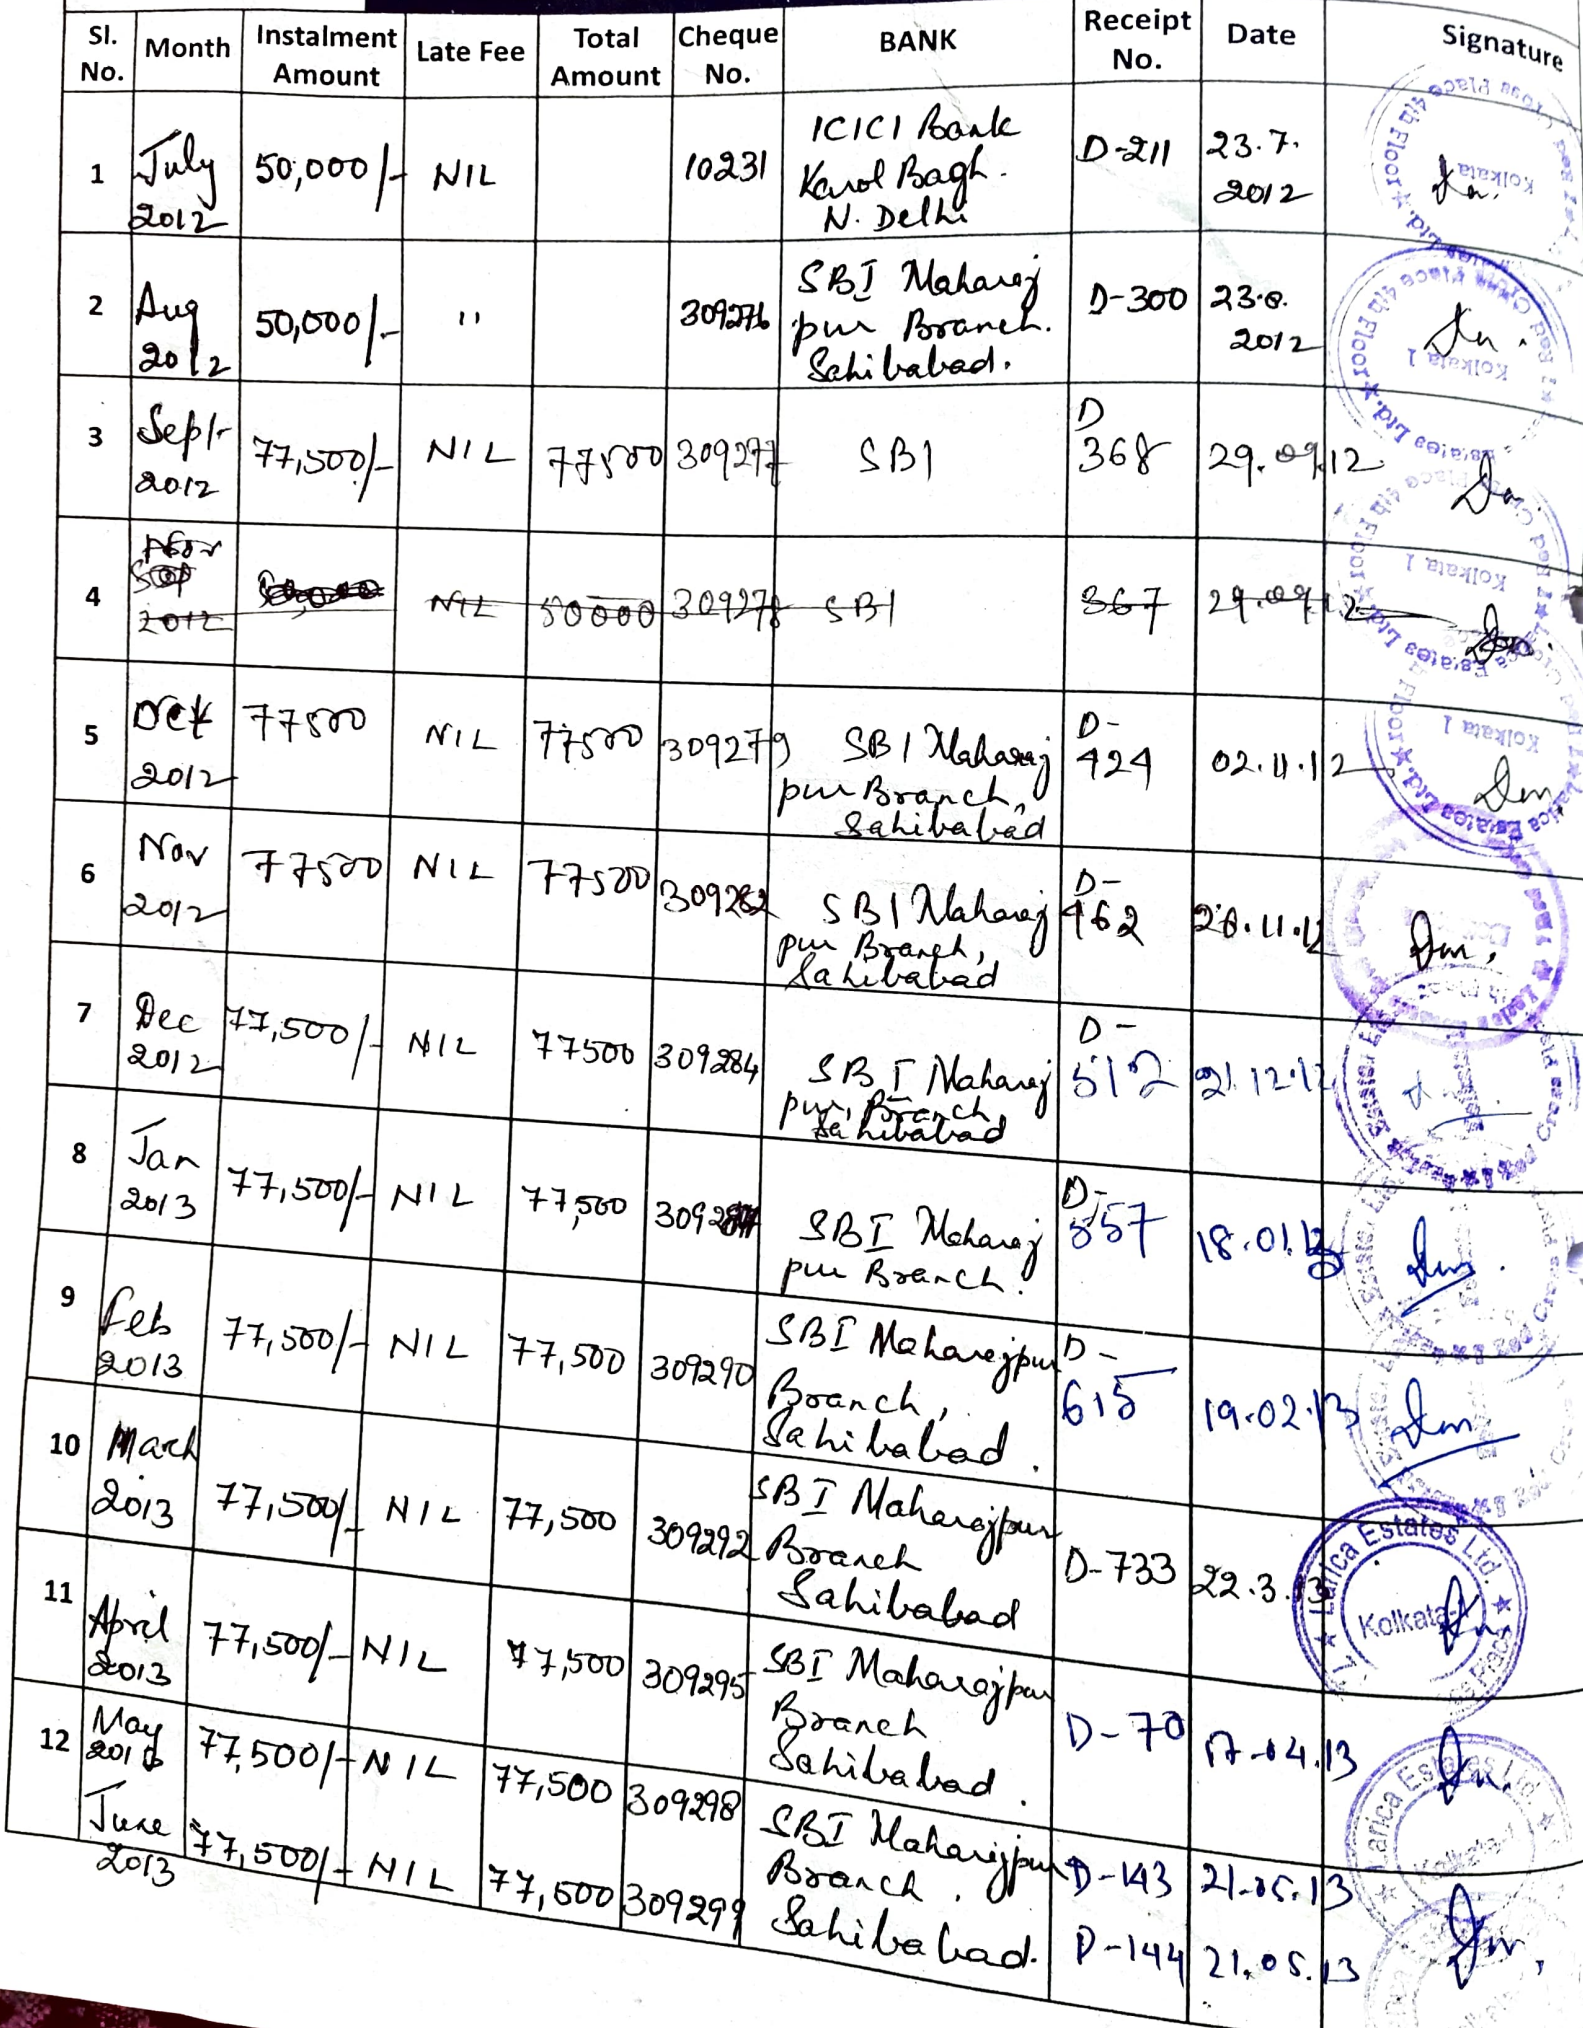 Sl. No. Month Instalment Amount Late Fee Total Amount Cheque No. BANK Receipt No. Date Signature
1 July 2012 50,000/- NIL 10231 ICICI Bank Karol Bagh. N. Delhi D-211 23.7.2012
2 Aug 2012 50,000/- " 309276 SBI Maharajpur Branch. Sahibabad. D-300 23.8.2012
3 Sept 2012 77,500/- NIL 77500 309277 SBI D 368 29.09.12
4 2012 NIL 50000 309278 SBI 367 29.09.12
5 Oct 2012 77500 NIL 77500 309279 SBI Maharajpur Branch, Sahibabad D-424 02.11.12
6 Nov 2012 77500 NIL 77500 309282 SBI Maharajpur Branch, Sahibabad D-462 26.11.12
7 Dec 2012 77,500/- NIL 77500 309284 SBI Maharajpur, Branch, Sahibabad D-512 21.12.12
8 Jan 2013 77,500/- NIL 77,500 SBI Maharajpur Branch. D-557 18.01.13
9 Feb 2013 77,500/- NIL 77,500 309290 SBI Maharajpur Branch, Sahibabad. D-615 19.02.13
10 March 2013 77,500/- NIL 77,500 309292 SBI Maharajpur Branch Sahibabad D-733 22.3.13
Larica Estates Ltd. Kolkata-1
11 April 2013 77,500/- NIL 77,500 309295 SBI Maharajpur Branch Sahibabad. D-70 17-04.13
Larica Estates Ltd.
12 May 2013 77,500/- NIL 77,500 309298 SBI Maharajpur Branch. Sahibabad. D-143 21-05.13
June 2013 77,500/- NIL 77,500 309299 D-144 21.05.13